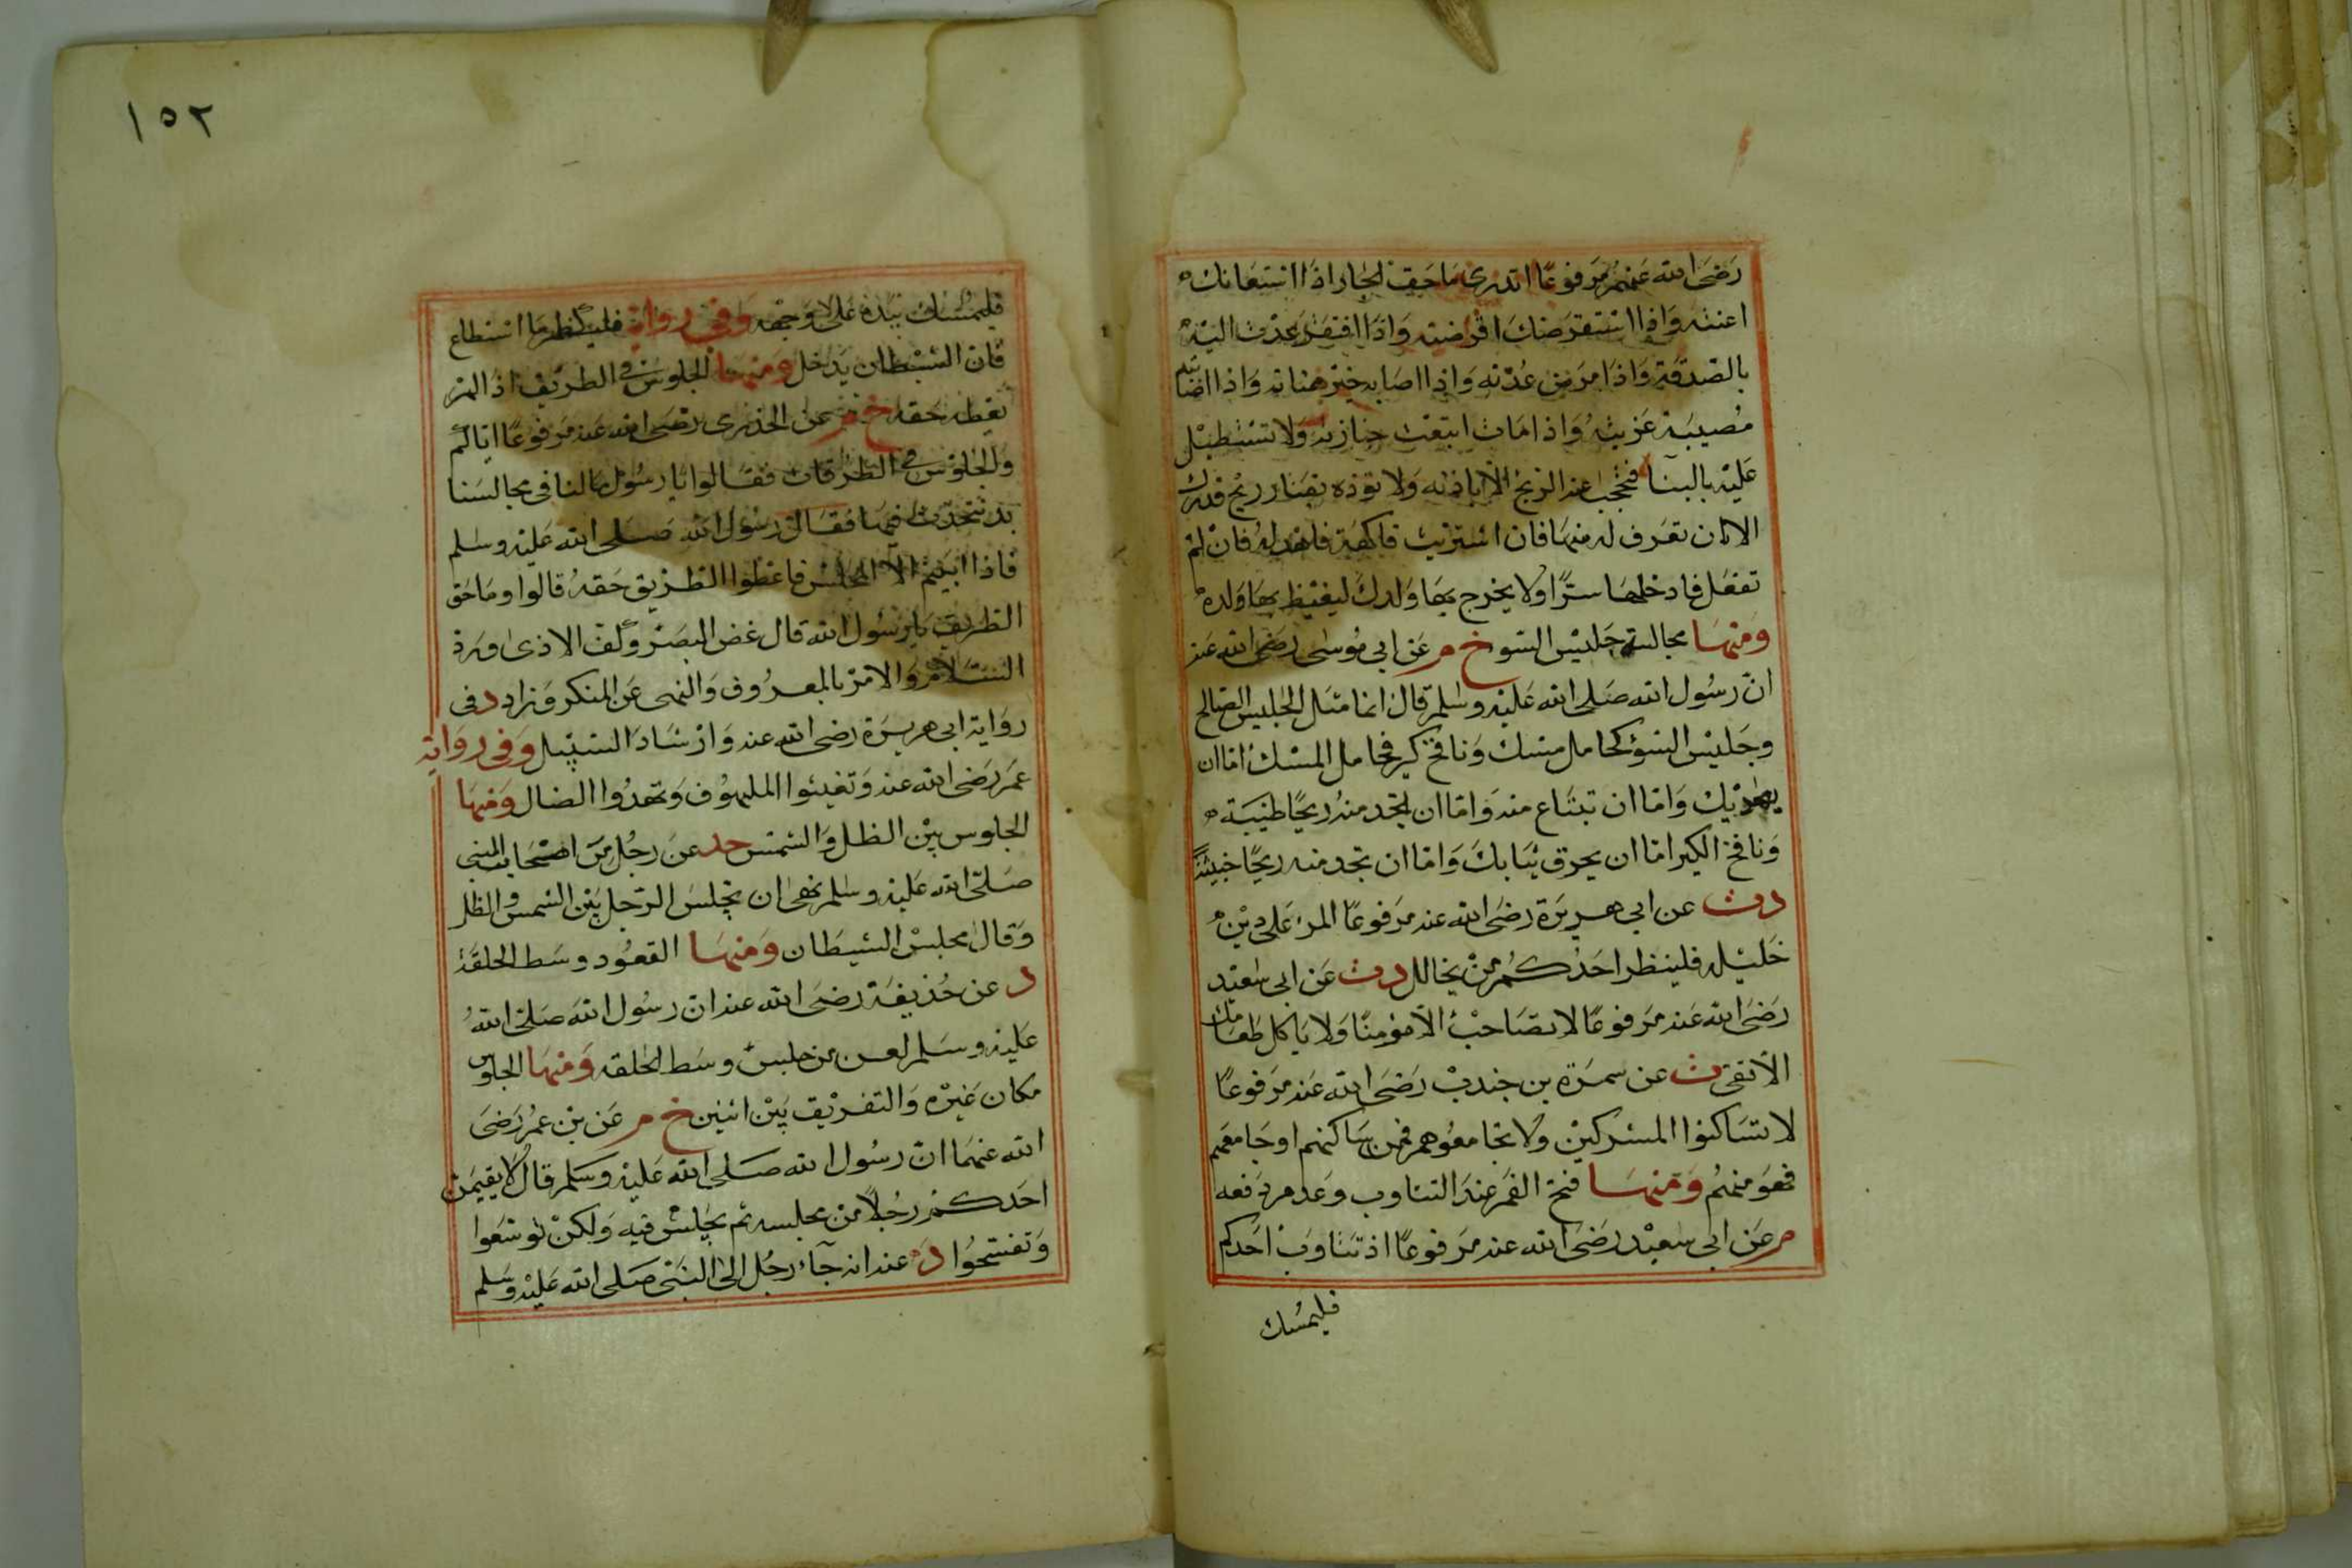 رضى الله عنهم مرفوعا اتدرى ما حق الجار اذا استعانك
اعنته واذا استقرضك اقرضته واذا افتقر عدت اليه
بالصدقة واذا مرض عدته واذا اصابه خير هناته واذا اصابته
مصيبة عزيته واذا مات ابتعت جنازته ولا تستطيل
عليه بالبنا فتحجب عنه الريح الا باذنه ولا توذه بقتار ريح قدرك
الا ان تعرف له منها فان اشتريت فاكهة فاهد له فان لم
تفعل فادخلها سترا ولا يخرج بها ولدك ليغيظ بها ولده
ومنها مجالسة جليس السو خ م عن ابى موسى رضى الله عنه
ان رسول الله صلى الله عليه وسلم قال انما مثل الجليس الصالح
وجليس السؤ كحامل مسك ونافخ كير فحامل المسك اما ان
يحذيك واما ان تبتاع منه واما ان تجد منه ريحا طيبة
ونافخ الكير اما ان يحرق ثيابك واما ان تجد منه ريحا خبيثة
دت عن ابى هريرة رضى الله عنه مرفوعا المرء على دين
خليله فلينظر احدكم من يخالل دت عن ابى سعيد
رضى الله عنه مرفوعا لا تصاحب الا مؤمنا ولا ياكل طعامك
الا تقى ت عن سمرة بن جندب رضى الله عنه مرفوعا
لا تساكنوا المشركين ولا تجامعوهم فمن ساكنهم او جامعهم
فهو منهم ومنها فتح الفم عند التثاوب وعدم دفعه
م عن ابى سعيد رضى الله عنه مرفوعا اذ تثاوب احدكم
فليمسك
١٥٢
فليمسك بيده على وجهه وفى رواية فليكظم ما استطاع
فان الشيطان يدخل ومنها الجلوس فى الطريق اذا لم
يعطه حقه خ م عن الخدرى رضى الله عنه مرفوعا اياكم
والجلوس فى الطرقات فقالوا يا رسول ما لنا فى مجالسنا
بد نتحدث فيها فقال رسول الله صلى الله عليه وسلم
فاذا ابيتم الا المجلس فاعطوا الطريق حقه قالوا وما حق
الطريق يا رسول الله قال غض البصر وكف الاذى ورد
السلام والامر بالمعروف والنهى عن المنكر وزاد د فى
رواية ابى هريرة رضى الله عنه وارشاد السبيل وفى رواية
عمر رضى الله عنه وتغيثوا الملهوف وتهدوا الضال ومنها
الجلوس بين الظل والشمس حد عن رجل من اصحاب النبى
صلى الله عليه وسلم نهى ان يجلس الرجل بين الشمس والظل
وقال مجلس الشيطان ومنها القعود وسط الحلقة
د عن حذيفة رضى الله عنه ان رسول الله صلى الله
عليه وسلم لعن من جلس وسط الحلقه ومنها الجلوس
مكان غيره والتفريق بين اثنين خ م عن بن عمر رضى
الله عنهما ان رسول الله صلى الله عليه وسلم قال لا يقيمن
احدكم رجلا من مجلسه ثم يجلس فيه ولكن توسعوا
وتفسحوا د عنه انه جآء رجل الى النبى صلى الله عليه وسلم